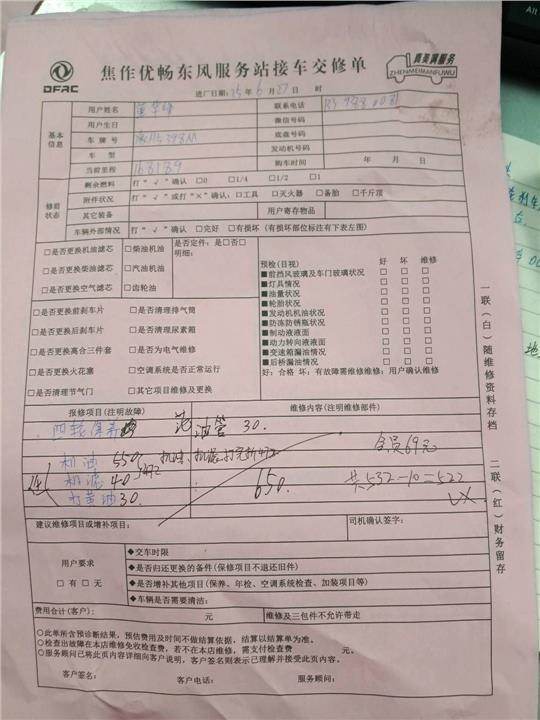 DFAC
焦作优畅东风服务站接车交修单
真美满服务
ZHENMEIMANFUWU
进厂日期：25年6月27日 时
基本信息
用户姓名 联系电话
用户生日 微信号码
车 牌 号 底盘号码
车 型 发动机号码
当前里程 168189 购车时间 年 月 日
修前状态
剩余燃料 打“√”确认 □0 □1/4 □1/2 □1
附件状况 打“√”或打“×”确认：□工具 □灭火器 □备胎 □千斤顶
其它装备 用户寄存物品
车辆外部情况 打“√”确认 □完好 □有损坏（有损坏部位标注有下表左图）
□是否更换机油滤芯 □柴油机油 是否定件：是□否□
□是否更换柴油滤芯 □汽油机油 明细：
□是否更换空气滤芯 □齿轮油
□是否更换前刹车片 □是否清理排气筒
□是否更换后刹车片 □是否清理尿素箱
□是否更换离合三件套 □是否为电气维修
□是否更换火花塞 □空调系统是否正常运行
□是否清理节气门 □其它项目维修及更换
预检(目视) 好 坏 维修
■前挡风玻璃及车门玻璃状况 □ □ □
■灯具情况 □ □ □
■油量状况 □ □ □
■轮胎状况 □ □ □
■发动机机油状况 □ □ □
■防冻防锈瓶状况 □ □ □
■制动液液面 □ □ □
■动力转向液液面 □ □ □
■变速箱漏油情况 □ □ □
■后桥漏油情况 □ □ □
好：合格 坏：有故障需维修维修：用户确认维修
报修项目(注明故障) 维修内容(注明维修部件)
四轮保养 油管 30.
机油 550 会员69元
机滤 40 650. 共532-10=522
打黄油 30.
建议维修项目或增补项目： 司机确认签字：
用户要求
□ 有 □ 无
◆交车时限
◆是否归还更换的备件(保修项目不退还旧件)
◆是否增补其他项目(保养、年检、空调系统检查、加装项目等)
◆车辆是否需要清洁：
费用合计(客户)： 元 维修及三包件不允许带走
○此单所含预诊断结果，预估费用及时间不做结算依据，结算以结算单为准。
○检查出故障在本店维修免收检查费，若不在本店维修，需支付检查费 元。
○服务顾问已将此页内容详细向客户说明，客户签名则表示已理解并接受此页内容。
客户签名： 客户电话： 服务顾问：
一联(白)随维修资料存档
二联(红)财务留存
Alt